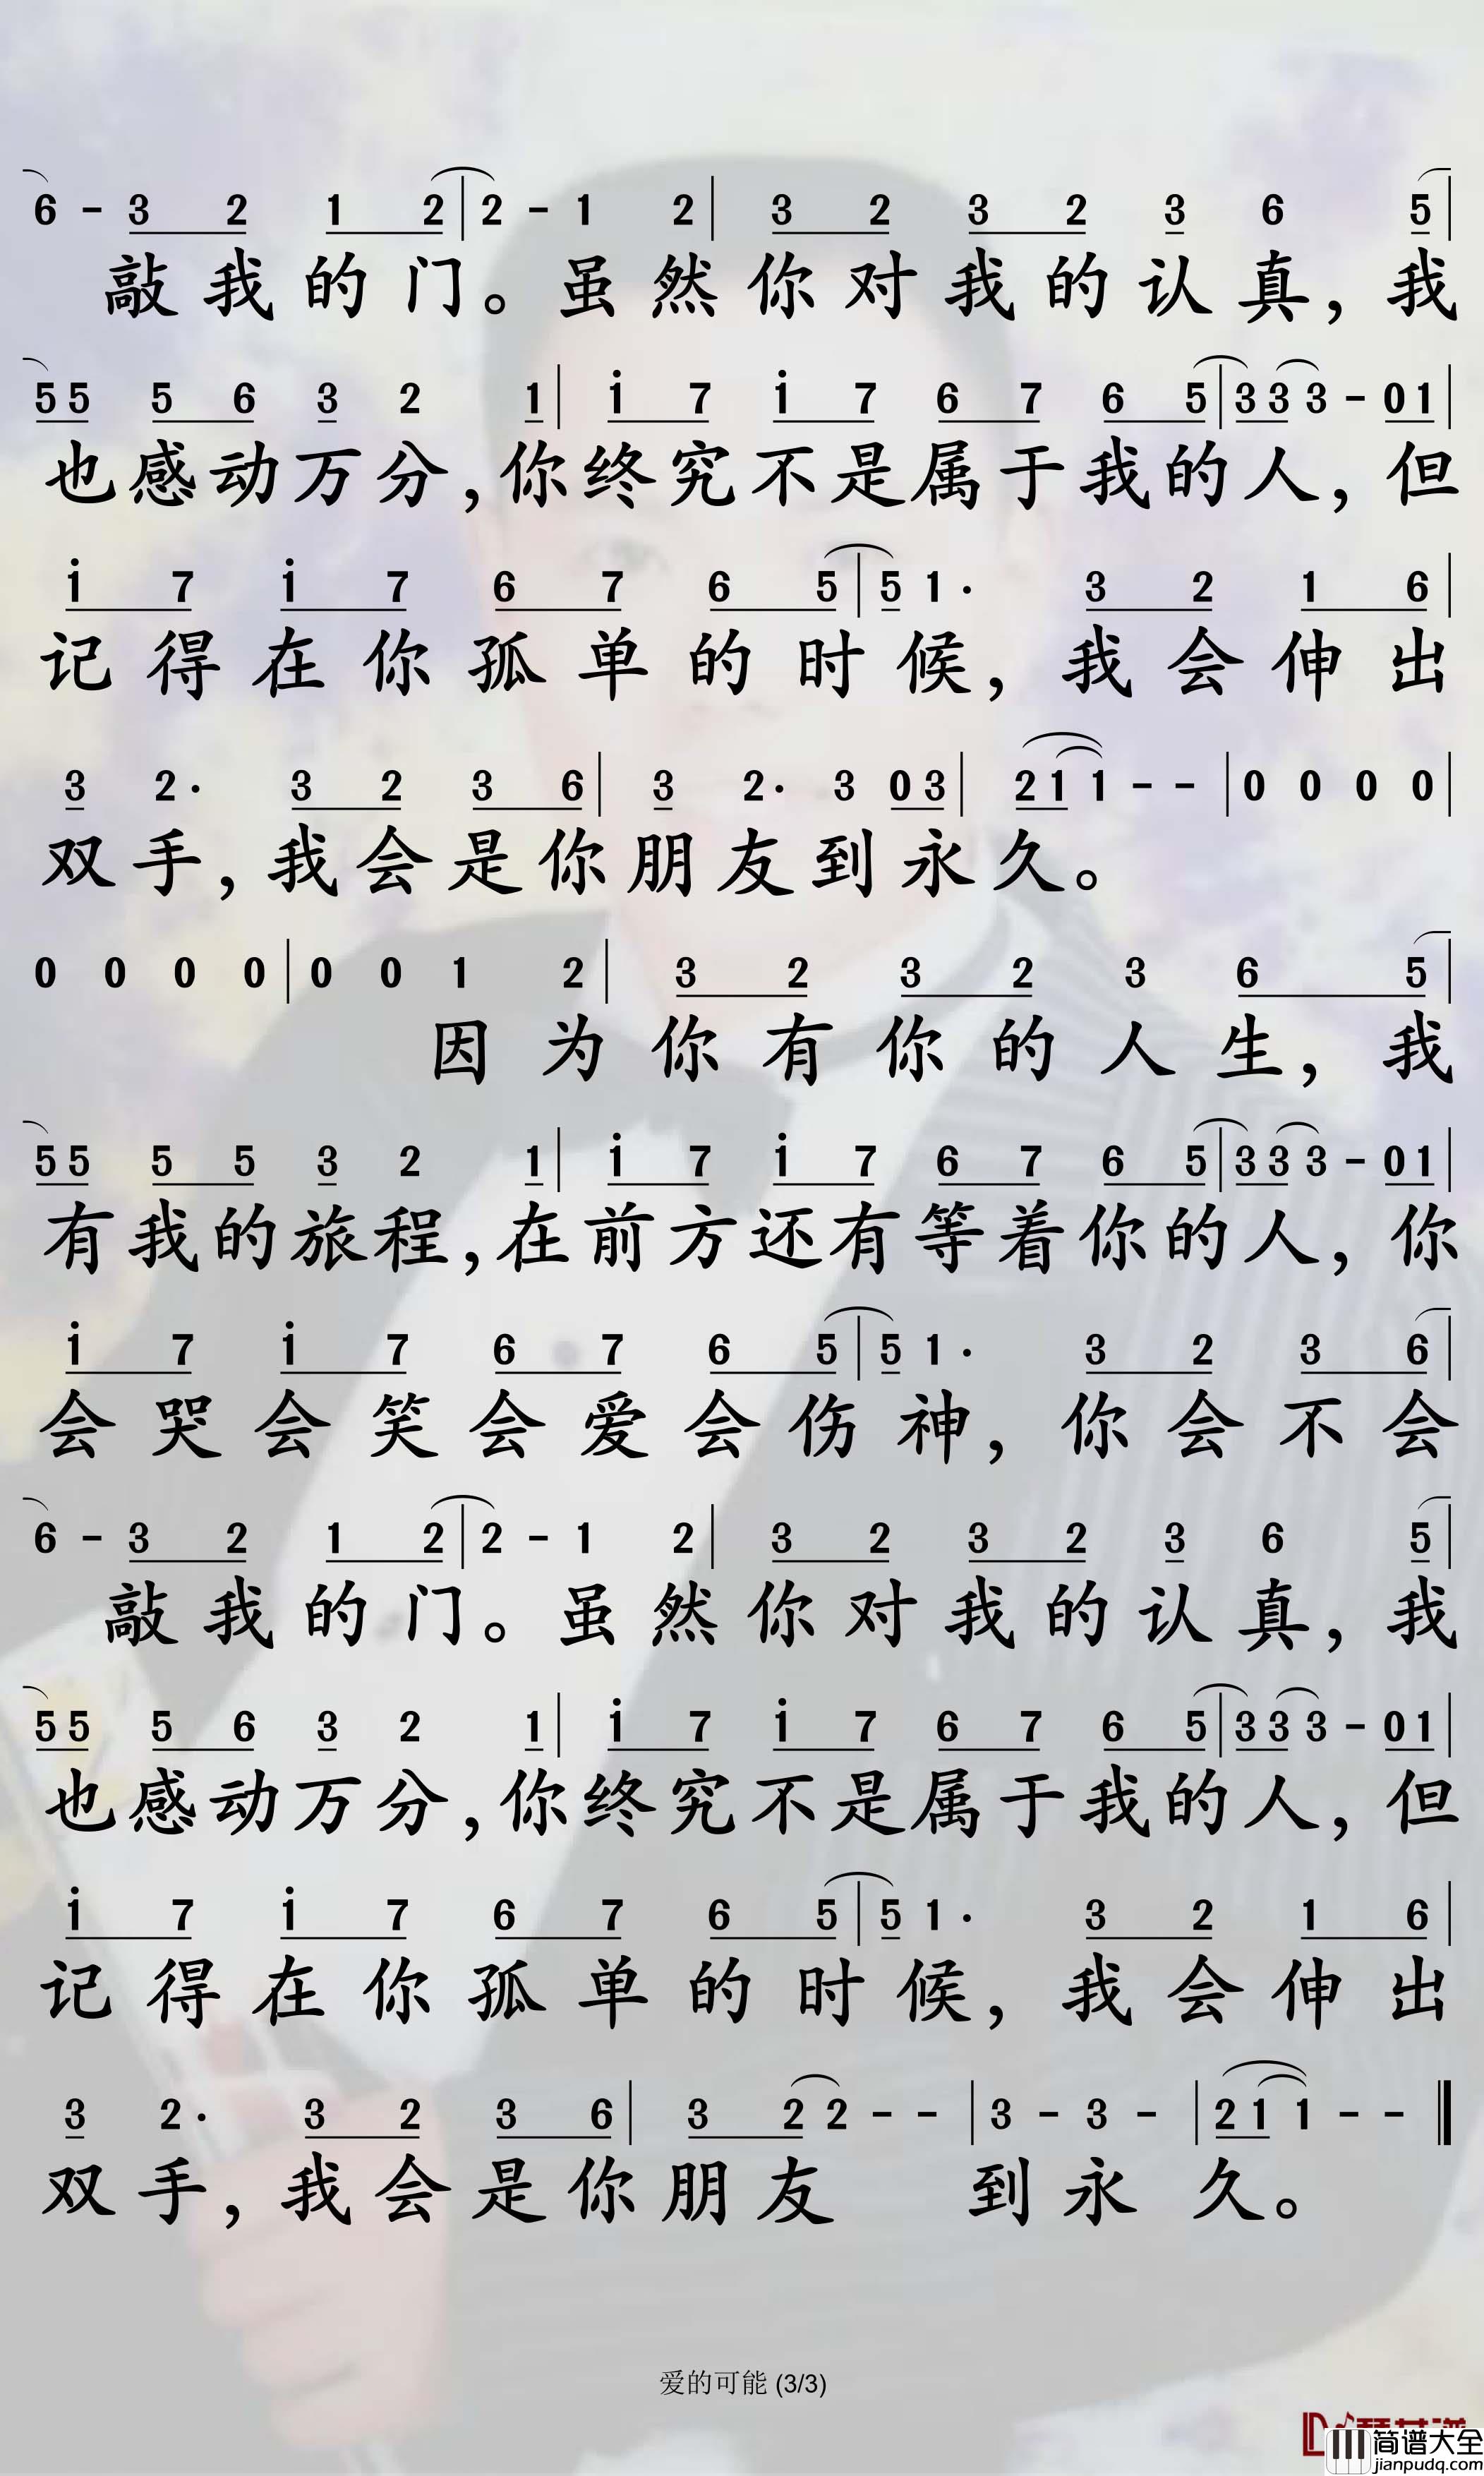 6 - 3 2 1 2 | 2 - 1 2 | 3 2 3 2 3 6 5 |
敲我的门。虽然你对我的认真，我
5 5 5 6 3 2 1 | i 7 i 7 6 7 6 5 | 3 3 3 - 0 1 |
也感动万分，你终究不是属于我的人，但
i 7 i 7 6 7 6 5 | 5 1· 3 2 1 6 |
记得在你孤单的时候，我会伸出
3 2· 3 2 3 6 | 3 2· 3 0 3 | 2 1 1 - - | 0 0 0 0 |
双手，我会是你朋友到永久。
0 0 0 0 | 0 0 1 2 | 3 2 3 2 3 6 5 |
因为你有你的人生，我
5 5 5 5 3 2 1 | i 7 i 7 6 7 6 5 | 3 3 3 - 0 1 |
有我的旅程，在前方还有等着你的人，你
i 7 i 7 6 7 6 5 | 5 1· 3 2 3 6 |
会哭会笑会爱会伤神，你会不会
6 - 3 2 1 2 | 2 - 1 2 | 3 2 3 2 3 6 5 |
敲我的门。虽然你对我的认真，我
5 5 5 6 3 2 1 | i 7 i 7 6 7 6 5 | 3 3 3 - 0 1 |
也感动万分，你终究不是属于我的人，但
i 7 i 7 6 7 6 5 | 5 1· 3 2 1 6 |
记得在你孤单的时候，我会伸出
3 2· 3 2 3 6 | 3 2 2 - - | 3 - 3 - | 2 1 1 - - ‖
双手，我会是你朋友 到永久。
爱的可能 (3/3)
简谱大全
jianpudq.com